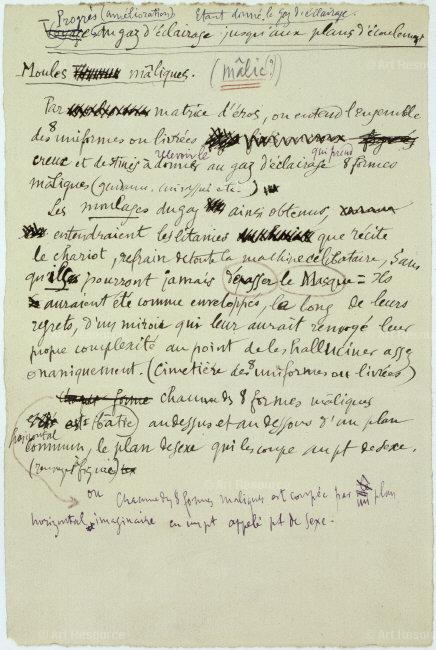 Progrès (amélioration) Etant donné le gaz d'éclairage.
du gaz d'éclairage jusqu'aux plans d'écoulement
Moules mâliques. (mâlic?)
Par matrice d'éros, on entend l'ensemble
des 8 uniformes ou livrées
creux et destinés à recevoir le au gaz d'éclairage qui prend 8 formes
mâliques (gendarme, cuirassier etc)
Les moulages du gaz ainsi obtenus,
entendraient les litanies que récite
le chariot, refrain de toute la machine célibataire, Sans
qu'ils pourront jamais dépasser le Masque = Ils
auraient été comme enveloppés, le long de leurs
regrets, d'un miroir qui leur aurait renvoyé leur
propre complexité au point de les halluciner assez
onaniquement. (Cimetière des 8 uniformes ou livrées)
forme chacune des 8 formes mâliques
est (bâtie) au dessus et au dessous d'un plan
horizontal
commun, le plan de sexe qui les coupe au pt de sexe.
ou Chacune des 8 formes mâliques est coupée par un plan
horizontal imaginaire en un pt appelé pt de sexe.
© Art Resource